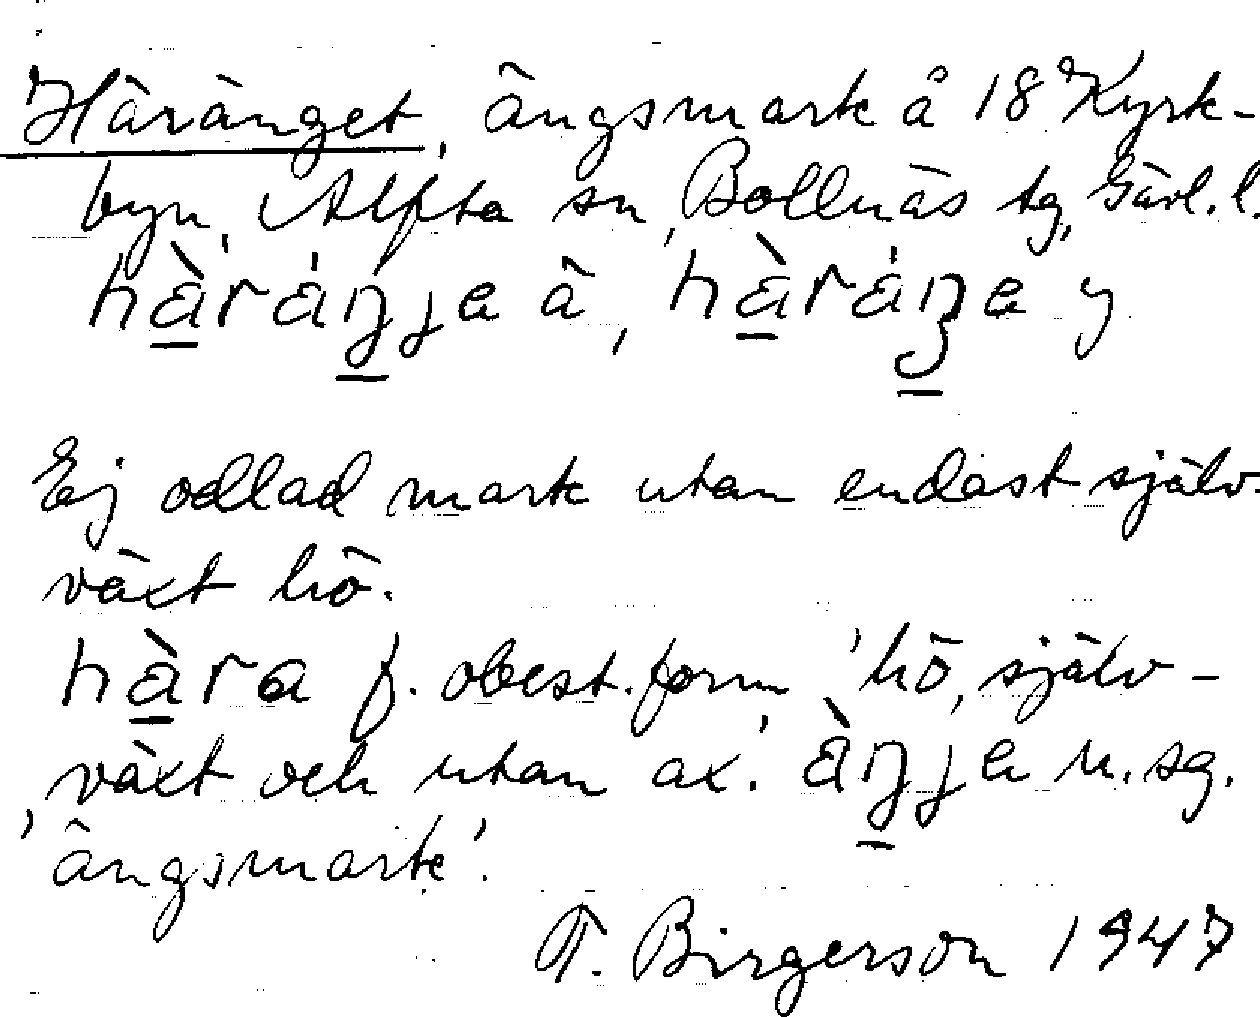 Häränget, ängsmark å 18 Kyrk-
byn, Alfta sn, Bollnäs tg, Gävl. l.
hàráŋje ä, hàráŋe y
Ej odlad mark utan endast själv-
växt hö.
hàra f. obest. form 'hö, själv-
växt och utan ax.' àŋje n. sg.
'ängsmark'.
T. Birgerson 1947